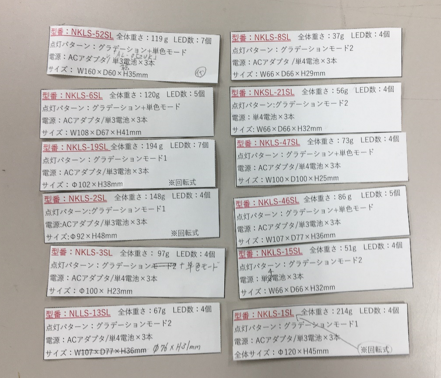 型番：NKLS-52SL 全体重さ：119ｇ LED数：7個
点灯パターン：グラデーション+単色モード
電源：ACアダプタ/単3電池×3本
サイズ： W160×D60×H35mm
型番：NKLS-6SL 全体重さ：120g LED数：5個
点灯パターン：グラデーション+単色モード
電源：ACアダプタ/単3電池×3本
サイズ：W108×D67×H41mm
型番：NKLS-19SL 全体重さ：194ｇ LED数：7個
点灯パターン：グラデーションモード1
電源：ACアダプタ/単3電池×3本
サイズ：Φ102×H38mm ※回転式
型番：NKLS-2SL 全体重さ：148g LED数：4個
点灯パターン:グラデーションモード1
電源:ACアダプタ/単3電池×3本
サイズ:Φ92×H48mm ※回転式
型番：NKLS-3SL 97g LED数：4個
点灯パターン：グラデーション + 単色モード
電源：ACアダプタ/単4電池×3本
サイズ：Φ100×H23mm
型番：NLLS-13SL 全体重さ：67g LED数：4個
点灯パターン：グラデーションモード2
電源：ACアダプタ/単4電池×3本
サイズ：W107×D77×H36mm Φ76×H31mm
型番：NKLS-8SL 全体重さ：37g LED数：4個
点灯パターン：グラデーションモード2
電源：ACアダプタ/単4電池×3本
サイズ：W66×D66×H29mm
型番：NKSL-21SL 全体重さ：56g LED数：4個
点灯パターン：グラデーションモード2
電源：単4電池×3本
サイズ：W66×D66×H32mm
型番：NKSL-47SL 全体重さ：73g LED数：4個
点灯パターン：グラデーション+単色モード
電源：ACアダプタ/単4電池×3本
サイズ：W100×D100×H25mm
型番：NKSL-46SL 全体重さ：86ｇ LED数：5個
点灯パターン：グラデーション+単色モード
電源：ACアダプタ/単4電池×3本
サイズ：W107×D77×H36mm
型番：NKSL-15SL 全体重さ：51g LED数：4個
点灯パターン：グラデーションモード2
電源：単4電池×3本
サイズ：W66×D66×H32mm
型番：NKSL-1SL 全体重さ：214g LED数：4個
点灯パターン：グラデーションモード1
電源：ACアダプタ/単3電池×3本 ※回転式
全体サイズ：Φ120×H45mm